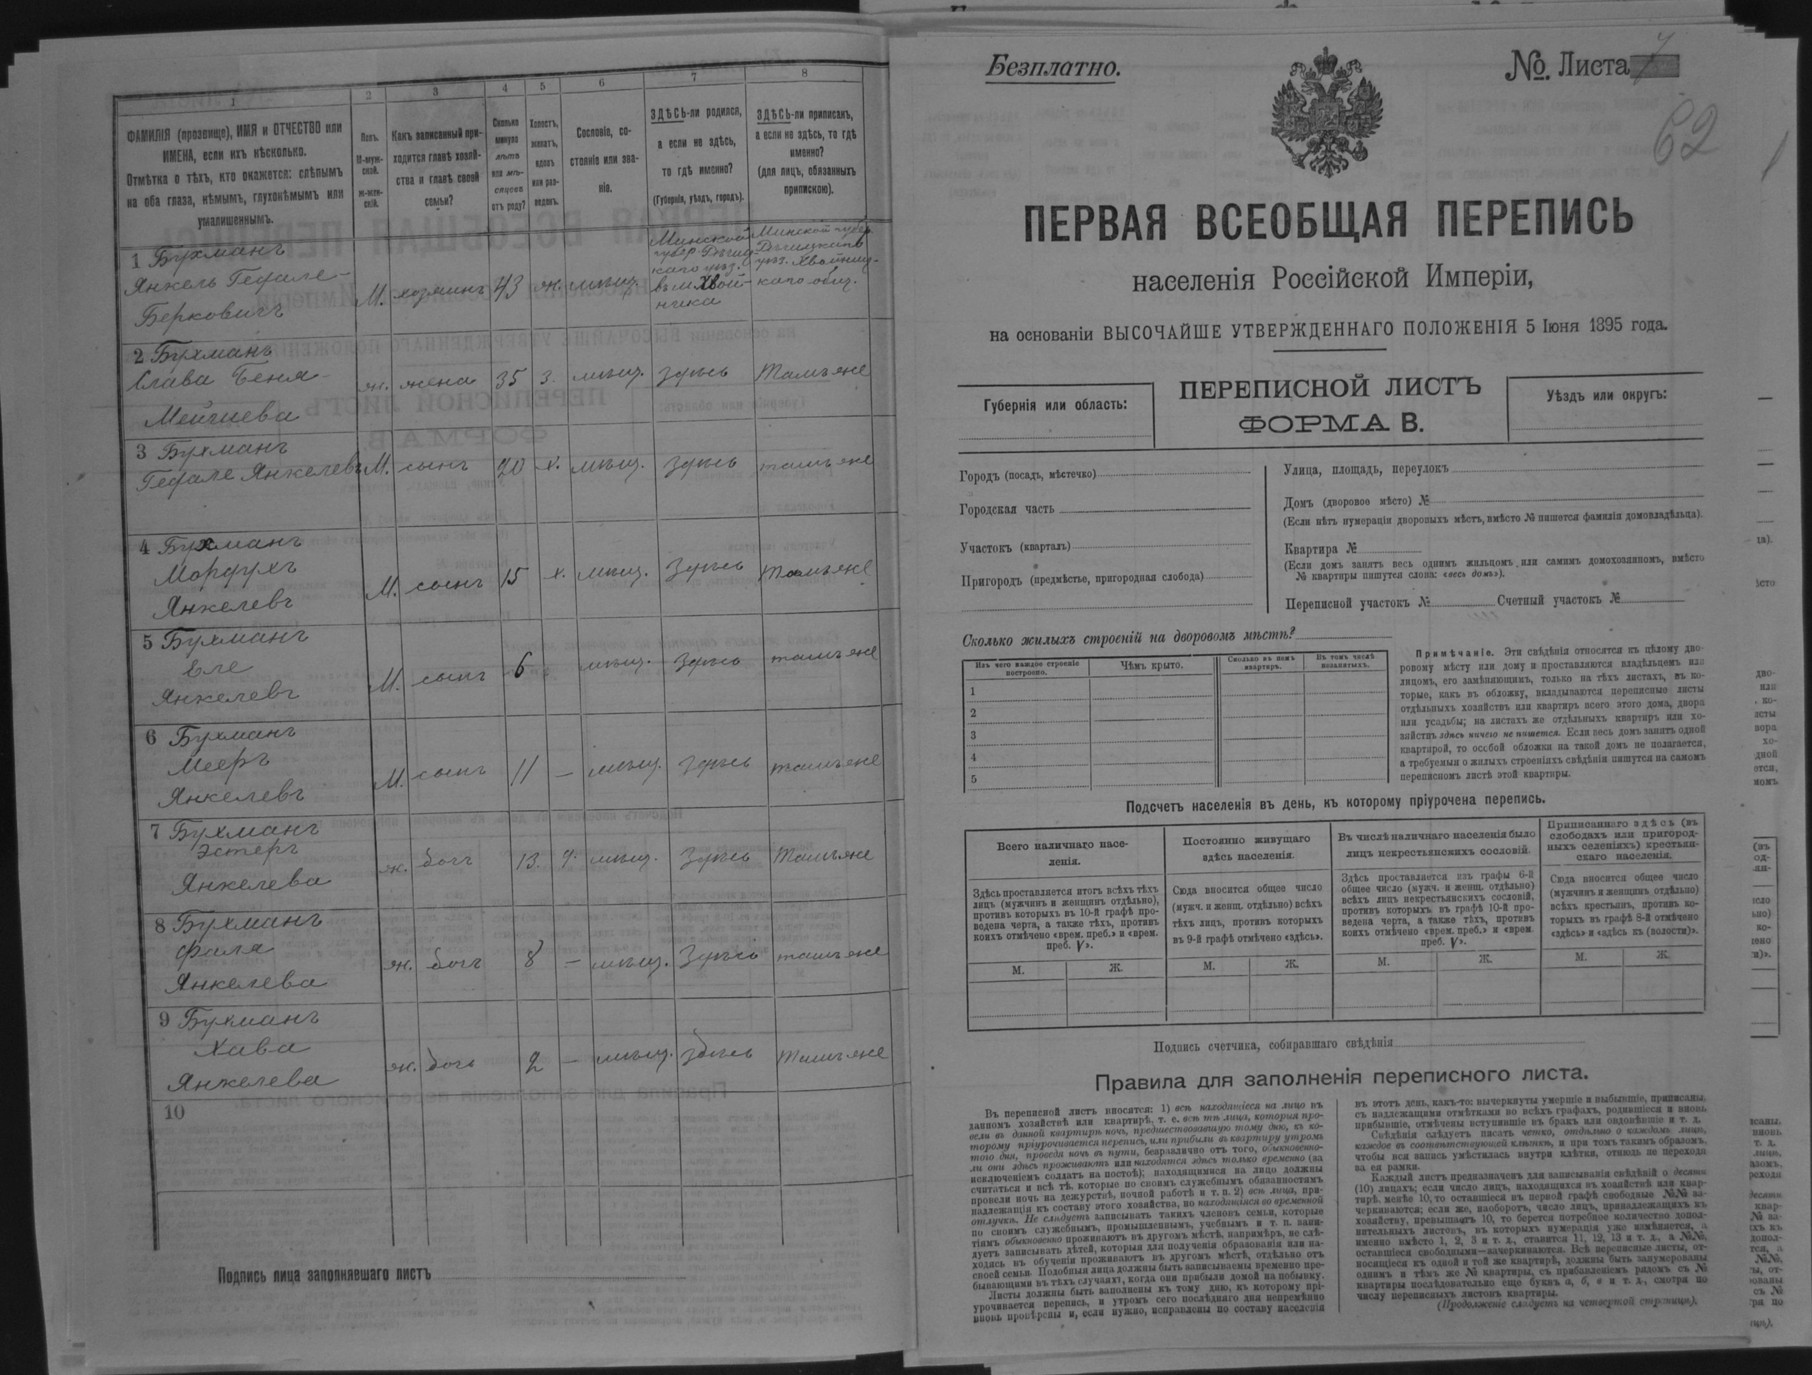 1
2
3
4
5
6
7
8
ФАМИЛІЯ (прозвище), ИМЯ и ОТЧЕСТВО или
ИМЕНА, если ихъ нѣсколько.
Отмѣтка о тѣхъ, кто окажется: слѣпымъ
на оба глаза, нѣмымъ, глухонѣмымъ или
умалишеннымъ.
Полъ.
М-муж-
ской.
Ж-жен-
скій.
Какъ записанный при-
ходится главѣ хозяй-
ства и главѣ своей
семьи?
Сколько
минуло
лѣтъ
или мѣ-
сяцевъ
отъ роду?
Холостъ,
женатъ,
вдовъ
или раз-
веденъ.
Сословіе, со-
стояніе или зва-
ніе.
ЗДѢСЬ-ли родился,
а если не здѣсь,
то гдѣ именно?
(Губернія, уѣздъ, городъ).
ЗДѢСЬ-ли приписанъ,
а если не здѣсь, то гдѣ
именно?
(для лицъ, обязанныхъ
припискою).
1 Бухманъ
Янкель Гефале-
Берковичъ
М. хозяинъ 43 ж. мѣщ.
Минской
губер
каго уѣз.
въ м Хвой-
ника
Минской губер.
уѣз. Хвойниц-
каго общ.
2 Бухманъ
Слава Беня-
Мейчиева
ж. жена 35 з. мѣщ. здѣсь тамъ же
3 Бухманъ
Гефале Янкелевъ М. сынъ 20 х. мѣщ. здѣсь тамъ же
4 Бухманъ
Мордухъ
Янкелевъ
М. сынъ 15 х. мѣщ. здѣсь тамъ же
5 Бухманъ
Еле
Янкелевъ
М. сынъ 6 мѣщ. здѣсь тамъ же
6 Бухманъ
Мееръ
Янкелевъ
М. сынъ 11 — мѣщ. здѣсь тамъ же
7 Бухманъ
Эстеръ
Янкелева
ж. дочь 13. д. мѣщ. здѣсь тамъ же
8 Бухманъ
Фаля
Янкелева
ж. дочь 8 — мѣщ. здѣсь тамъ же
9 Бухманъ
Хава
Янкелева
ж. дочь 2 — мѣщ. здѣсь тамъ же
10
Подпись лица заполнявшаго листъ
Безплатно.
№ Листа 7
62
ПЕРВАЯ ВСЕОБЩАЯ ПЕРЕПИСЬ
населенія Россійской Имперіи,
на основаніи ВЫСОЧАЙШЕ УТВЕРЖДЕННАГО ПОЛОЖЕНІЯ 5 Іюня 1895 года.
Губернія или область:
ПЕРЕПИСНОЙ ЛИСТЪ
ФОРМА В.
Уѣздъ или округъ:
Городъ (посадъ, мѣстечко)
Городская часть
Участокъ (кварталъ)
Пригородъ (предмѣстье, пригородная слобода)
Улица, площадь, переулокъ
Домъ (дворовое мѣсто) №
(Если нѣтъ нумераціи дворовыхъ мѣстъ, вмѣсто № пишется фамилія домовладѣльца).
Квартира №
(Если домъ занятъ весь однимъ жильцомъ или самимъ домохозяиномъ, вмѣсто
№ квартиры пишутся слова: «весь домъ»).
Переписной участокъ № Счетный участокъ №
Сколько жилыхъ строеній на дворовомъ мѣстѣ?
Изъ чего каждое строеніе
построено.
Чѣмъ крыто.
Сколько въ немъ
квартиръ.
Въ томъ числѣ
незанятыхъ.
1
2
3
4
5
Примѣчаніе. Эти свѣдѣнія относятся къ цѣлому дво-
ровому мѣсту или дому и проставляются владѣльцемъ или
лицомъ, его замѣняющимъ, только на тѣхъ листахъ, въ ко-
торые, какъ въ обложку, вкладываются переписные листы
отдѣльныхъ хозяйствъ или квартиръ всего этого дома, двора
или усадьбы; на листахъ же отдѣльныхъ квартиръ или хо-
зяйствъ здѣсь ничего не пишется. Если весь домъ занятъ одной
квартирой, то особой обложки на такой домъ не полагается,
а требуемыя о жилыхъ строеніяхъ свѣдѣнія пишутся на самомъ
переписномъ листѣ этой квартиры.
Подсчетъ населенія въ день, къ которому пріурочена перепись.
Всего наличнаго насе-
ленія.
Постоянно живущаго
здѣсь населенія.
Въ числѣ наличнаго населенія было
лицъ некрестьянскихъ сословій.
Приписаннаго здѣсь (въ
слободахъ или пригород-
ныхъ селеніяхъ) крестьян-
скаго населенія.
Здѣсь проставляется итогъ всѣхъ тѣхъ
лицъ (мужчинъ и женщинъ отдѣльно),
противъ которыхъ въ 10-й графѣ про-
ведена черта, а также тѣхъ, противъ
коихъ отмѣчено «врем. преб.» и «врем.
преб. V».
Сюда вносится общее число
(мужч. и женщ. отдѣльно) всѣхъ
тѣхъ лицъ, противъ которыхъ
въ 9-й графѣ отмѣчено «здѣсь».
Здѣсь проставляется изъ графы 6-й
общее число (мужч. и женщ. отдѣльно)
всѣхъ лицъ некрестьянскихъ сословій,
противъ которыхъ въ графѣ 10-й про-
ведена черта, а также тѣхъ, противъ
коихъ отмѣчено «врем. преб.» и «врем.
преб. V».
Сюда вносится общее число
(мужчинъ и женщинъ отдѣльно)
всѣхъ крестьянъ, противъ ко-
торыхъ въ графѣ 8-й отмѣчено
«здѣсь» и «здѣсь къ (волости)».
М. Ж. М. Ж. М. Ж. М. Ж.
Подпись счетчика, собиравшаго свѣдѣнія
Правила для заполненія переписного листа.
Въ переписной листъ вносятся: 1) всѣ находящіеся на лицо въ
данномъ хозяйствѣ или квартирѣ, т. е. всѣ тѣ лица, которыя про-
вели въ данной квартирѣ ночь, предшествовавшую тому дню, къ ко-
торому пріурочивается перепись, или прибыли въ квартиру утромъ
того дня, проведя ночь въ пути, безразлично отъ того, обыкновенно-
ли они здѣсь проживаютъ или находятся здѣсь только временно (за
исключеніемъ солдатъ на постоѣ); находящимися на лицо должны
считаться и всѣ тѣ, которые по своимъ служебнымъ обязанностямъ
провели ночь на дежурствѣ, ночной работѣ и т. п. 2) всѣ лица, при-
надлежащія къ составу этого хозяйства, но находящіяся во временной
отлучкѣ. Не слѣдуетъ записывать такихъ членовъ семьи, которые
по своимъ служебнымъ, промышленнымъ, учебнымъ и т. п. заня-
тіямъ обыкновенно проживаютъ въ другомъ мѣстѣ, напримѣръ, не слѣ-
дуетъ записывать дѣтей, которыя для полученія образованія или на-
ходясь въ обученіи проживаютъ въ другомъ мѣстѣ, отдѣльно отъ
своей семьи. Подобныя лица должны быть записываемы временно пре-
бывающими въ тѣхъ случаяхъ, когда они прибыли домой на побывку.
Листы должны быть заполнены къ тому дню, къ которому прі-
урочивается перепись, и утромъ сего послѣдняго дня непремѣнно
вновь провѣрены и, если нужно, исправлены по составу населенія
въ этотъ день, какъ-то: вычеркнуты умершіе и выбывшіе, приписаны,
съ надлежащими отмѣтками во всѣхъ графахъ, родившіеся и вновь
прибывшіе, отмѣчены вступившіе въ бракъ или овдовѣвшіе и т. д.
Свѣдѣнія слѣдуетъ писать четко, отдѣльно о каждомъ лицѣ,
каждое въ соотвѣтствующей клѣткѣ, и при томъ такимъ образомъ,
чтобы вся запись умѣстилась внутри клѣтки, отнюдь не переходя
за ея рамки.
Каждый листъ предназначенъ для записыванія свѣдѣній о десяти
(10) лицахъ; если число лицъ, находящихся въ хозяйствѣ или квар-
тирѣ, менѣе 10, то оставшіеся въ первой графѣ свободные №№ за-
черкиваются; если же, наоборотъ, число лицъ, принадлежащихъ къ
хозяйству, превышаетъ 10, то берется потребное количество допол-
нительныхъ листовъ, въ которыхъ нумерація уже измѣняется, а
именно вмѣсто 1, 2, 3 и т. д., ставится 11, 12, 13 и т. д., а №№,
оставшіеся свободными—зачеркиваются. Всѣ переписные листы, от-
носящіеся къ одной и той же квартирѣ, должны быть занумерованы
однимъ и тѣмъ же № квартиры, съ прибавленіемъ рядомъ съ №
квартиры послѣдовательно еще буквъ а, б, в и т. д., смотря по
числу переписныхъ листовъ квартиры.
(Продолженіе слѣдуетъ на четвертой страницѣ).